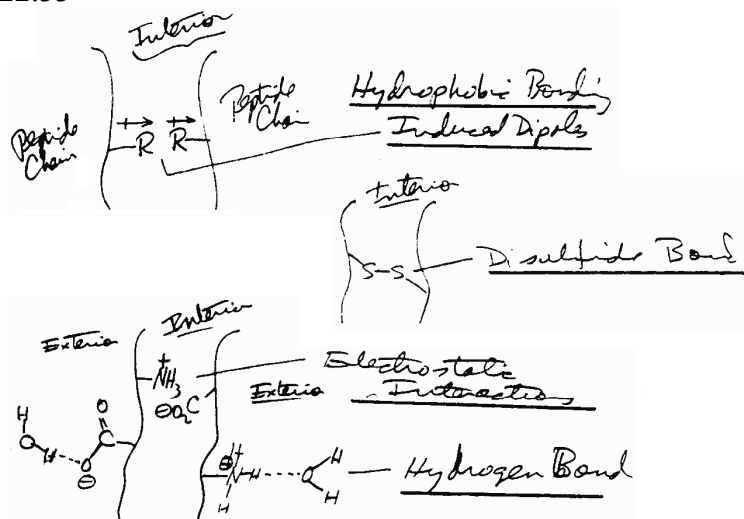 Interior
Peptide Chain
R R
Peptide Chain
Hydrophobic Bonding
Induced Dipoles
Interior
S-S
Disulfide Bond
Exterior
Interior
+
NH3
⊖O2C
Exterior
Electrostatic
Interactions
H
O
H
O
C
O
⊖
H
⊕N-H
H
O
H
H
Hydrogen Bond